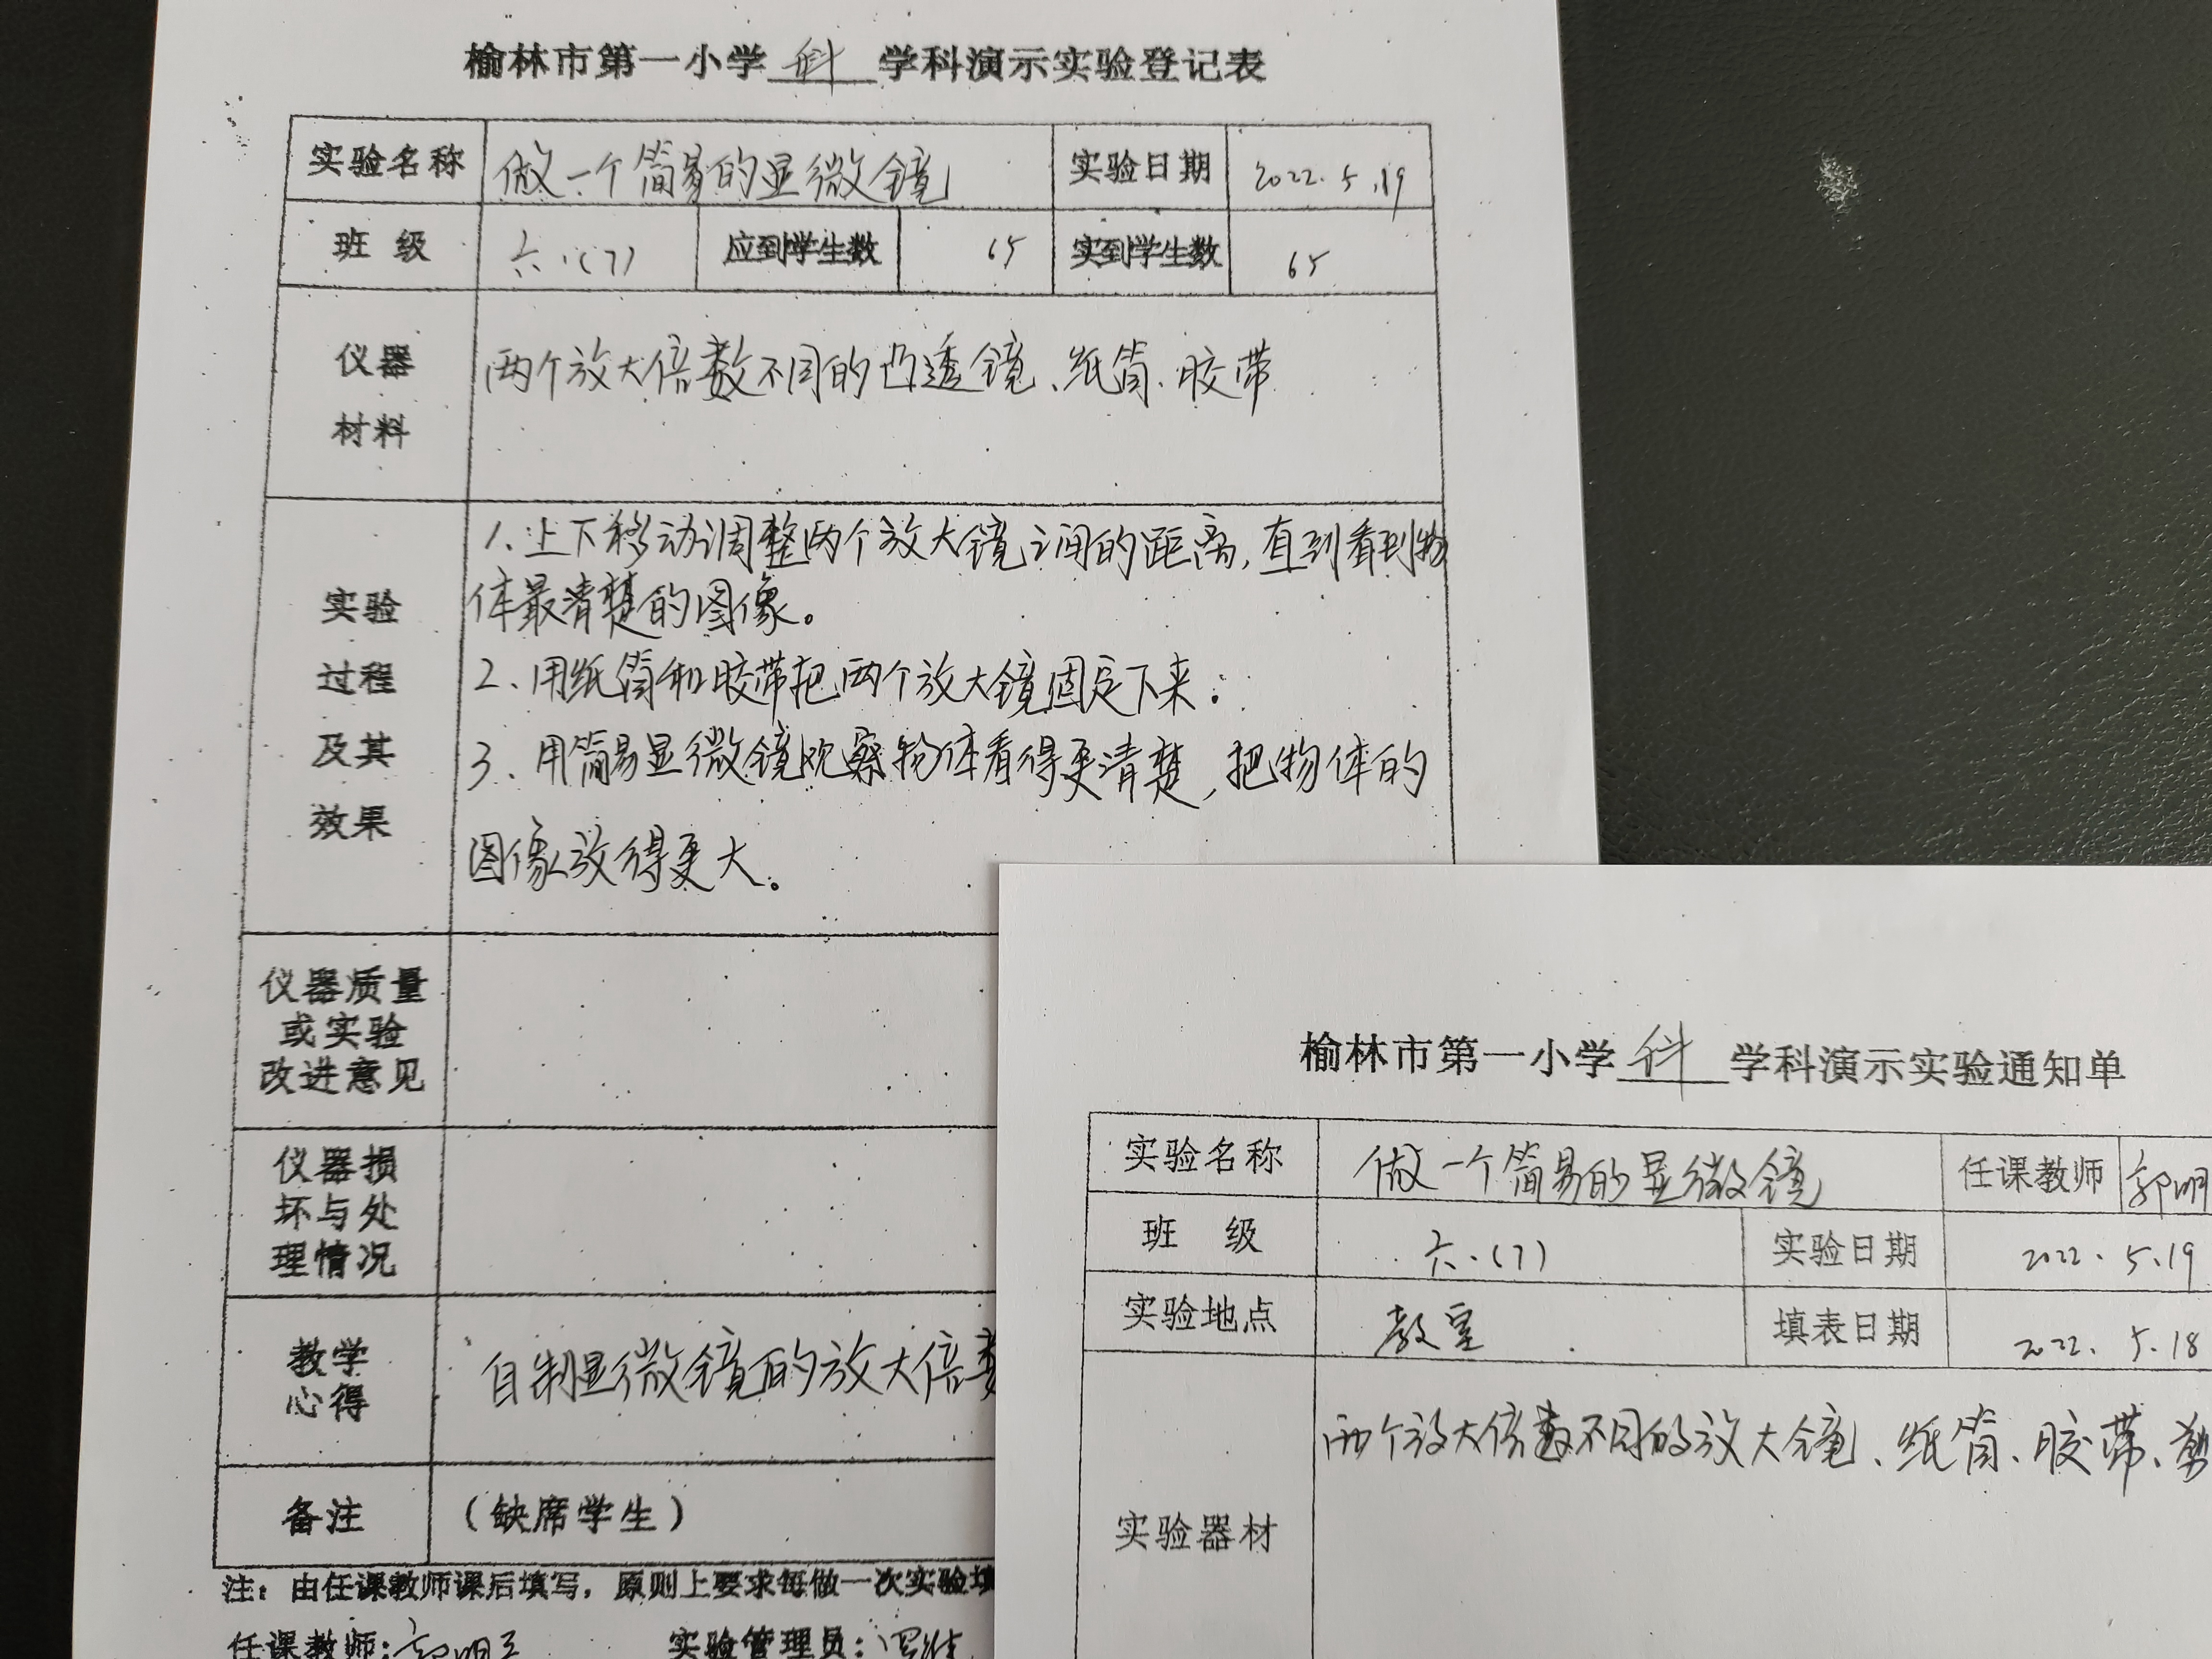 榆林市第一小学 科 学科演示实验登记表
实验名称 做一个简易的显微镜 实验日期 2022.5.19
班 级 六.(7) 应到学生数 65 实到学生数 65
仪器
材料
两个放大倍数不同的凸透镜、纸筒、胶带
实验
过程
及其
效果
1、上下移动调整两个放大镜之间的距离,直到看到物
体最清楚的图像。
2、用纸筒和胶带把两个放大镜固定下来。
3、用简易显微镜观察物体看得更清楚,把物体的
图像放得更大。
仪器质量
或实验
改进意见
仪器损
坏与处
理情况
教学
心得
自制显微镜的放大倍
备注 (缺席学生)
注:由任课教师课后填写,原则上要求每做一次实验填
任课教师: 郭明
实验管理员:
榆林市第一小学 科 学科演示实验通知单
实验名称 做一个简易的显微镜 任课教师 郭明
班 级 六.(7) 实验日期 2022.5.19
实验地点 教室 填表日期 2022.5.18
实验器材
两个放大倍数不同的放大镜、纸筒、胶带、剪